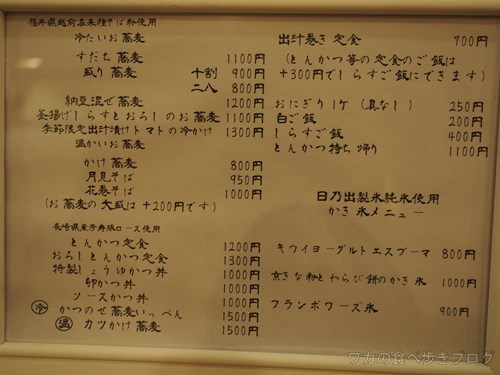 福井県越前在来種そば粉使用
冷たいお蕎麦
すだち蕎麦 1100円
盛り蕎麦 十割 900円
二八 800円
納豆混ぜ蕎麦 1200円
釜揚げしらすとおろしのお蕎麦 1100円
季節限定出汁漬けトマトの冷かけ 1300円
温かいお蕎麦
かけ蕎麦 800円
月見そば 950円
花巻そば 1000円
(お蕎麦の大盛は+200円です)
長崎県産芳寿豚ロース使用
とんかつ定食 1200円
おろしとんかつ定食 1300円
特製しょうゆかつ丼 1000円
卵かつ丼 1000円
ソースかつ丼 1000円
冷 かつのせ蕎麦いっぺん 1500円
温 カツかけ蕎麦 1500円
出汁巻き定食 700円
(とんかつ等の定食のご飯は
+300円でしらすご飯にできます)
おにぎり1ケ(具なし) 250円
白ご飯 200円
しらすご飯 400円
とんかつ持ち帰り 1100円
日乃出製氷純氷使用
かき氷メニュー
キウイヨーグルトエスプーマ 800円
京きな粉とわらび餅のかき氷 1000円
フランボワーズ氷 900円
ワカの食べ歩きブログ